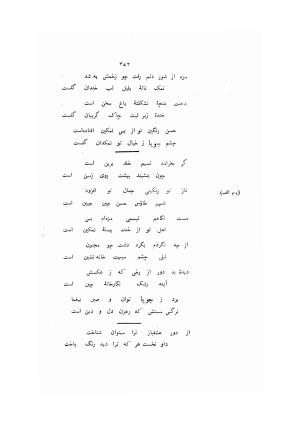 ۳۸۲
مزه از شور دلم رفت چو زخمش به شد
نمک نالهٔ بلبل لب خندان گلست
دهنت غنچهٔ نشکفتهٔ باغ سخن است
خندهٔ زیر لبت چاک گریبان گلست
حسن رنگین تو از بس نمکین افتادهاست
چشم جویا ز خیال تو نمکدان گلست
گر بخرامد نسیم خلد برین است
چون بنشیند بهشت روی زمین است
ناز تو رنگینی جمال تو افزود
شهپر طاؤس حسن چین جبین است
مست نگاهم تبسمی مزهام بس
لعل تو از خنده پستهٔ نمکین است
از چه نگردم بگرد دشت چو مجنون
لیلی چشم سیهت خانه نشین است
دیدهٔ بد دور از رخی که ز عکسش
آینه رشک نگارخانهٔ چین است
برد ز جویا توان و صبر بیغما
نرگس مستش که رهزن دل و دین است
از دور عشقباز ترا میتوان شناخت
داو نخست هر که ترا دید رنگ باخت